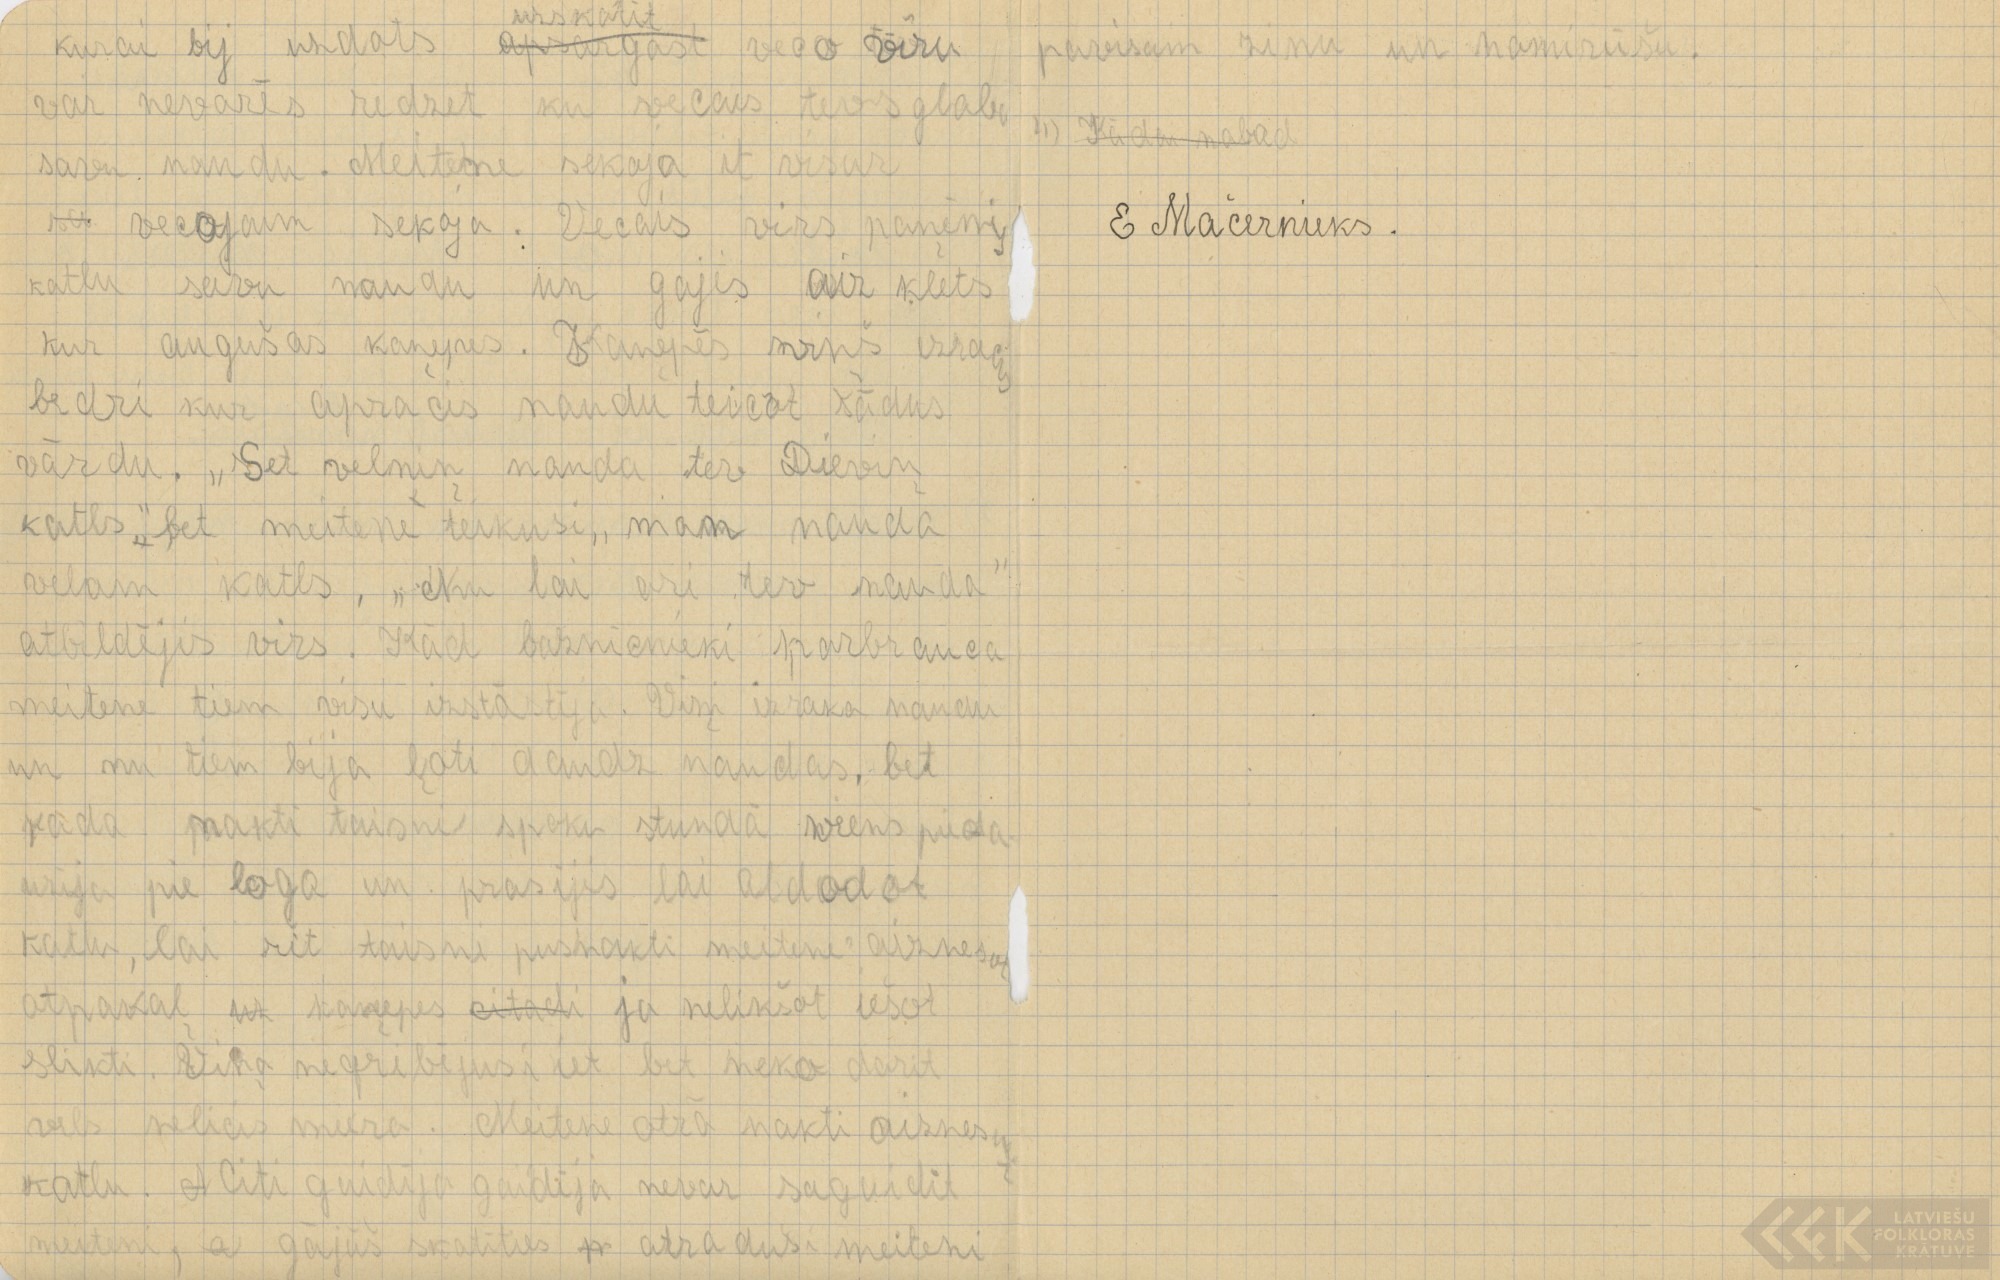 kurai bij uzdots uzskatīt veco vīru
var nevarēs redzet ku vecais tevs glabā
savu naudu. Meitene sekoja it visur
vecojam sekoja. Vecais virs paņēmis
katlu savu naudu un gajis aiz klēts
kur augušas kaņepes. Kaņepēs viņš izracis
bedri kur apracis naudu teicot kādus
vārdu. „Set velniņ nauda tev Dieviņ
katls," bet meitene teikusi „man nauda
velam katls, „Nu lai ari tev nauda"
atbildējis virs. Kad baznicnieki parbrauca
meitene tiem visu izstāstīja. Viņi izraka naudu
un nu tiem bija ļoti daudz naudas, bet
kāda nakti taisni spoku stundā viens pieda-
uzija pie loga un prasijis lai atdodot
katlu, lai rit taisni pusnakti meitene aiznesot
atpakaļ uz kaņepes citadi ja neliksot iešot
slikti. Viņa negribējusi iet bet neko darit
vels nelicis miera. Meitene otrā nakti aiznesusi
katlu. Citi gaidija gaidīja nevar sagaidit
meiteni, gājuš skatīties atraduši meiteni
pavisam zinu un nomirušu.
11) Kādu nabad
E Mačernieks.
LATVIEŠU
FOLKLORAS
KRĀTUVE